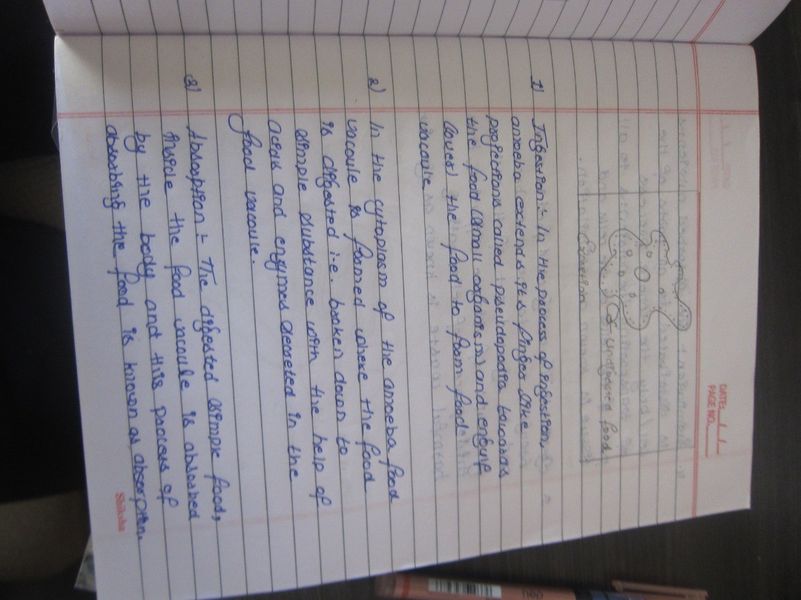 DATE:
PAGE NO.
undigested food
Egestion
1) Ingestion :- In the process of ingestion,
amoeba extends its finger like
projections called pseudopodia towards
the food (small organism) and engulf
(over) the food to form food
vacuole.
2) In the cytoplasm of the amoeba food
vacuole is formed where the food
is digested i.e. broken down to
simple substance with the help of
acids and enzymes secreted in the
food vacuole.
3) Absorption :- The digested simple food,
inside the food vacuole is absorbed
by the body and this process of
absorbing the food is known as absorption.
Shiksha